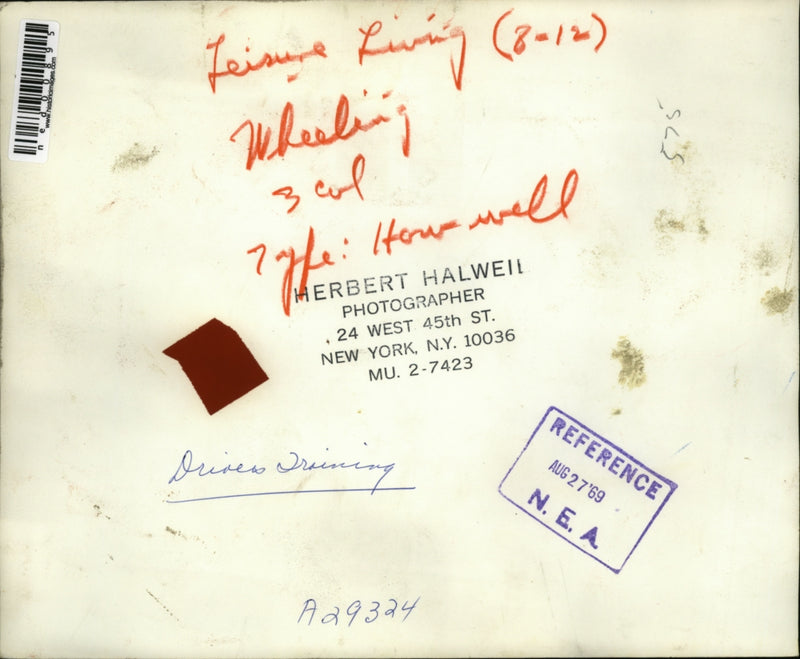 Leisure Living (8-12)
Wheeling
3 col
Type: Howwell
HERBERT HALWEIL
PHOTOGRAPHER
24 WEST 45th ST.
NEW YORK, N.Y. 10036
MU. 2-7423
575
Drivers Training
REFERENCE
AUG 27 '69
N. E. A.
A29324
ned00895
www.historicimages.com